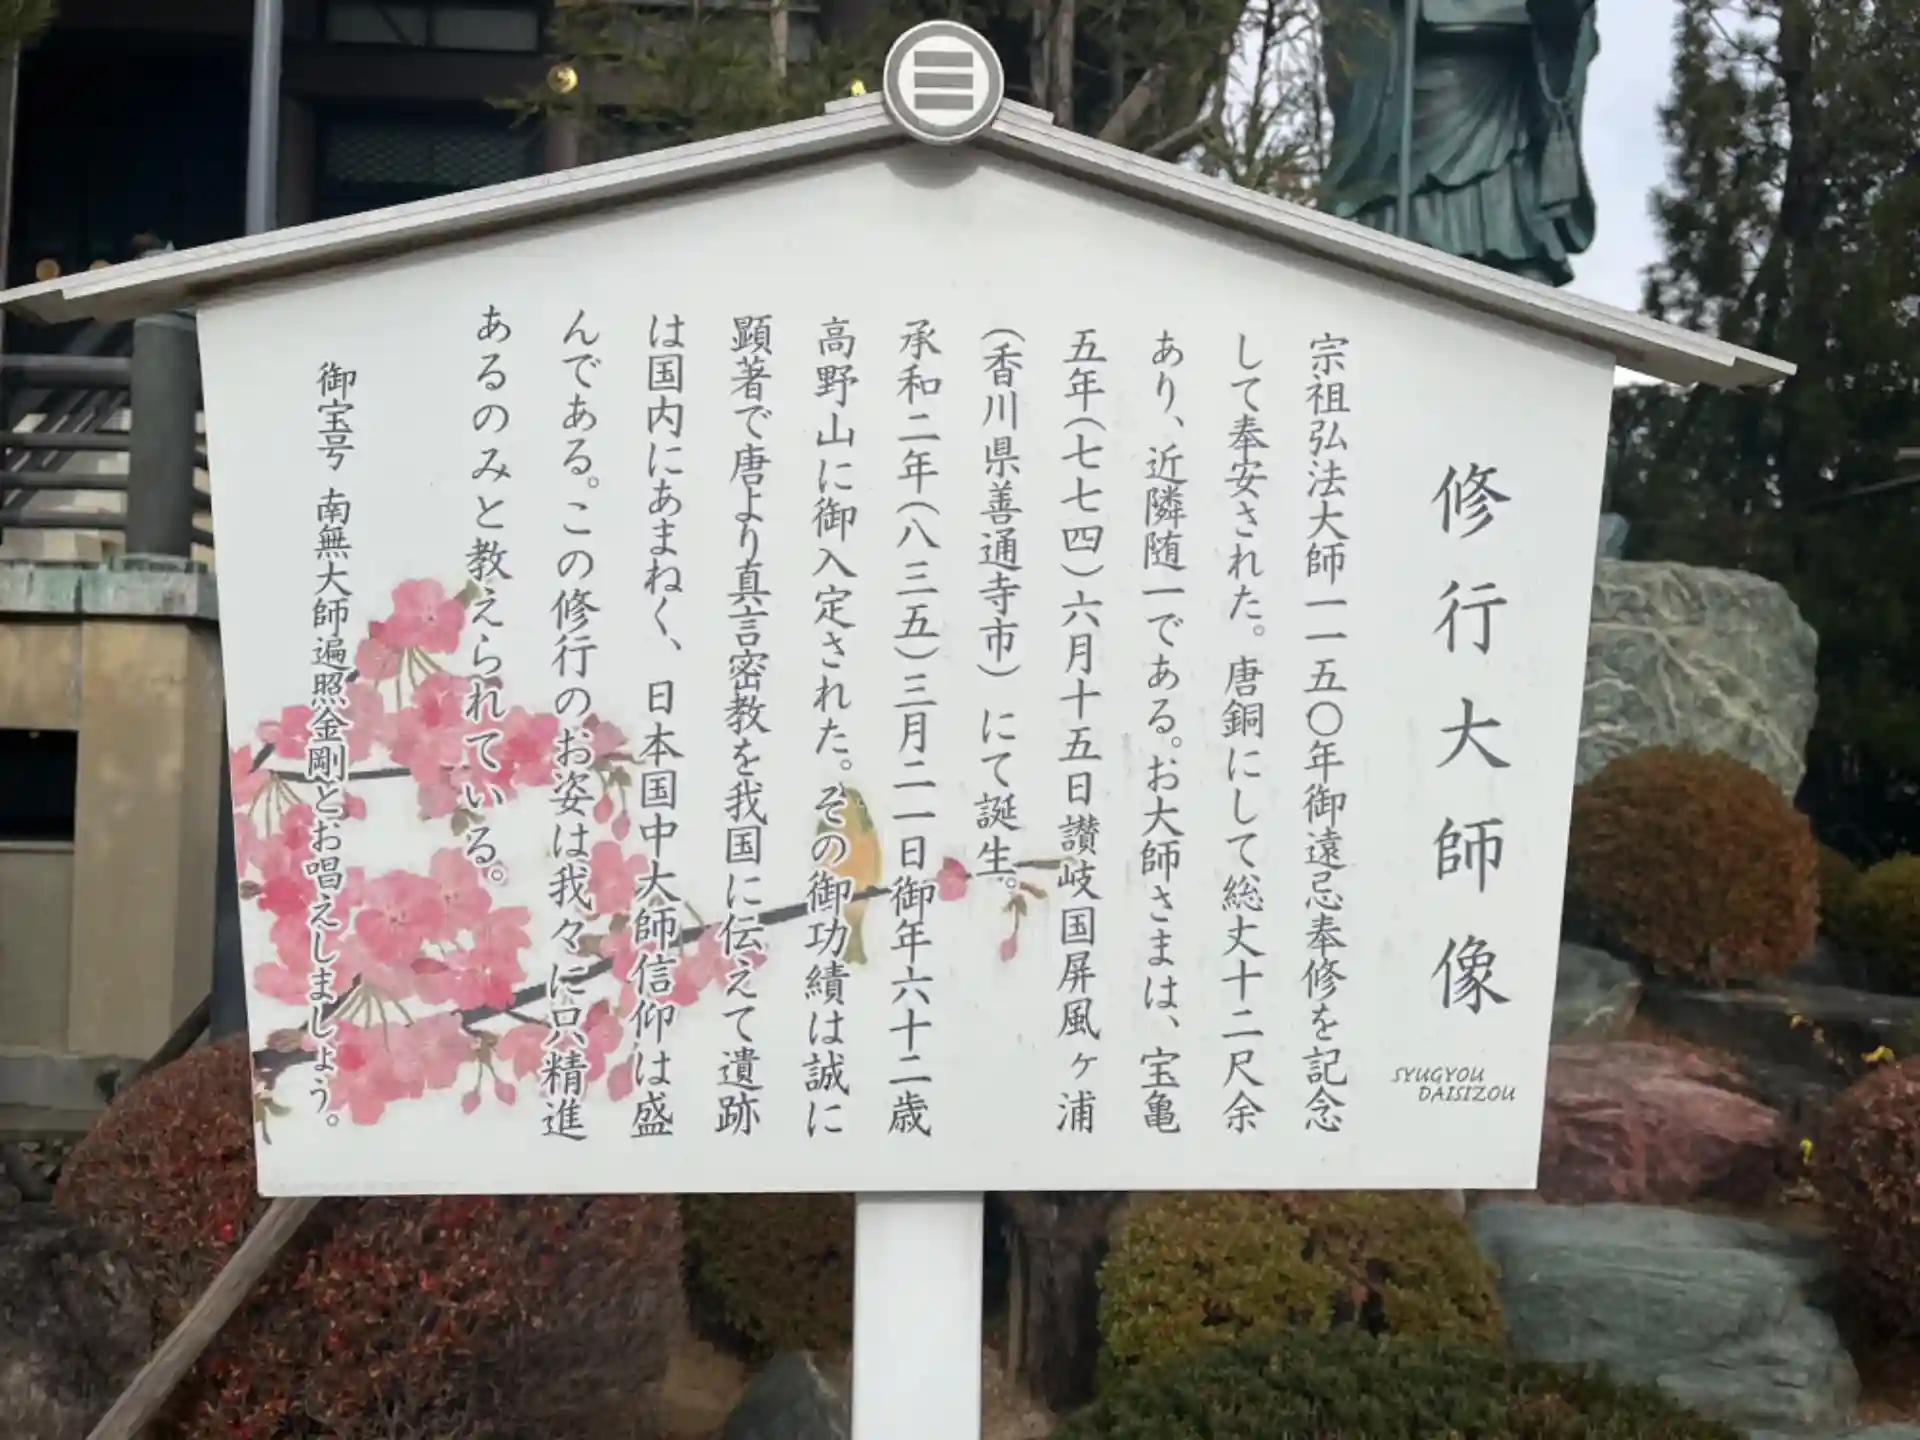 修行大師像
SYUGYOU
DAISIZOU
宗祖弘法大師一一五〇年御遠忌奉修を記念
して奉安された。唐銅にして総丈十二尺余
あり、近隣随一である。お大師さまは、宝亀
五年(七七四)六月十五日讃岐国屏風ヶ浦
(香川県善通寺市)にて誕生。
承和二年(八三五)三月二一日御年六十二歳
高野山に御入定された。その御功績は誠に
顕著で唐より真言密教を我国に伝えて遺跡
は国内にあまねく、日本国中大師信仰は盛
んである。この修行のお姿は我々に只精進
あるのみと教えられている。
御宝号 南無大師遍照金剛とお唱えしましょう。